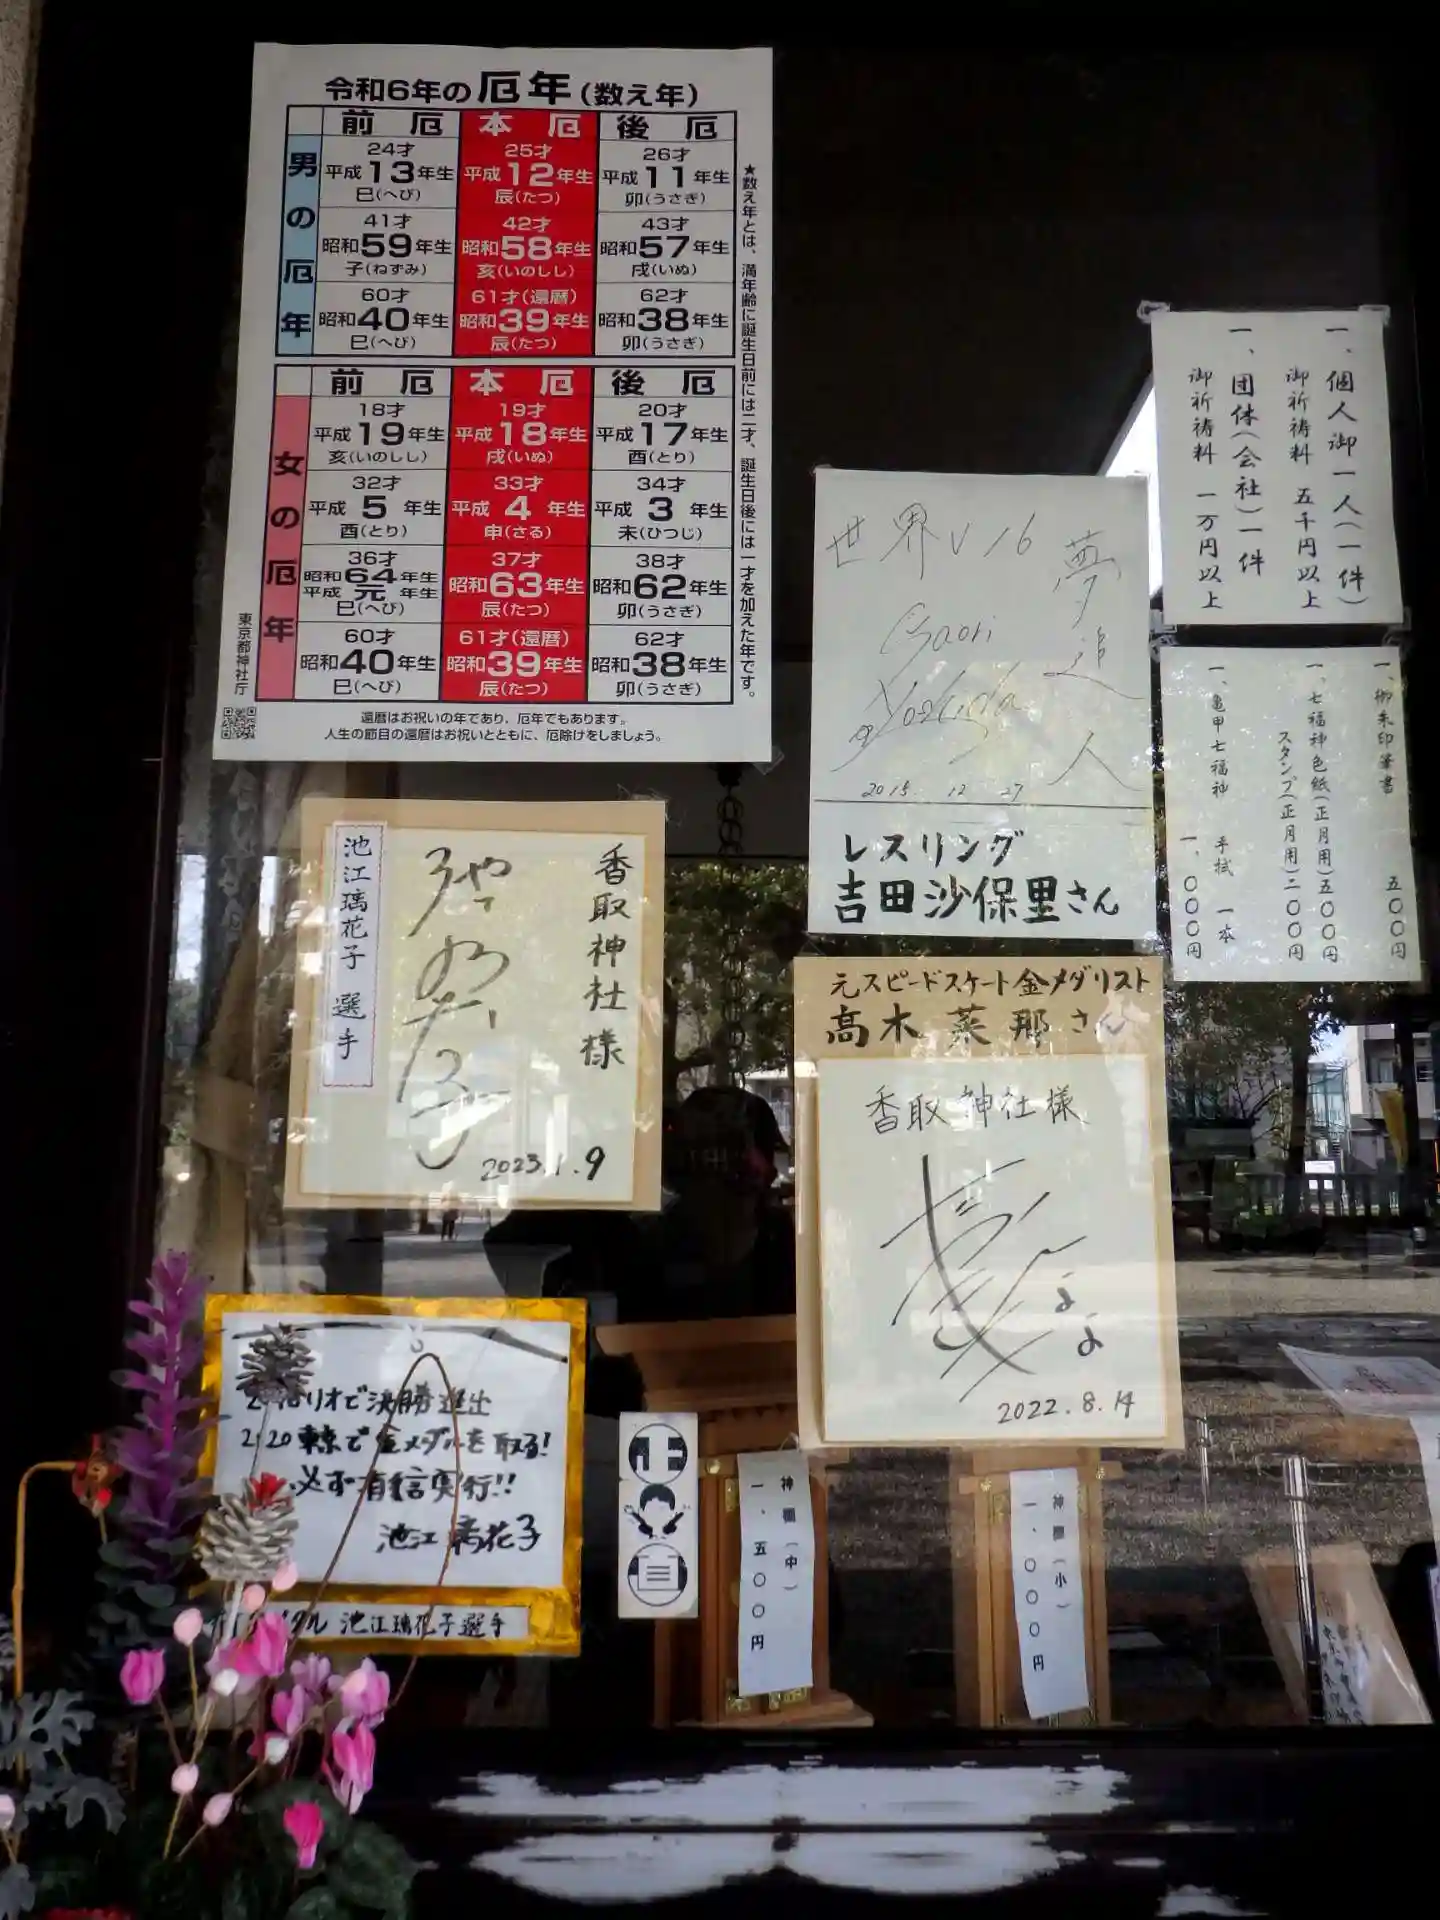 令和6年の厄年(数え年)
前厄 本厄 後厄
男の厄年
24才 25才 26才
平成13年生 平成12年生 平成11年生
巳(へび) 辰(たつ) 卯(うさぎ)
41才 42才 43才
昭和59年生 昭和58年生 昭和57年生
子(ねずみ) 亥(いのしし) 戌(いぬ)
60才 61才(還暦) 62才
昭和40年生 昭和39年生 昭和38年生
巳(へび) 辰(たつ) 卯(うさぎ)
前厄 本厄 後厄
女の厄年
18才 19才 20才
平成19年生 平成18年生 平成17年生
亥(いのしし) 戌(いぬ) 酉(とり)
32才 33才 34才
平成5年生 平成4年生 平成3年生
酉(とり) 申(さる) 未(ひつじ)
36才 37才 38才
昭和64年生 昭和63年生 昭和62年生
平成元年生
巳(へび) 辰(たつ) 卯(うさぎ)
60才 61才(還暦) 62才
昭和40年生 昭和39年生 昭和38年生
巳(へび) 辰(たつ) 卯(うさぎ)
★数え年とは、満年齢に誕生日前には二才、誕生日後には一才を加えた年です。
東京都神社庁
還暦はお祝いの年であり、厄年でもあります。
人生の節目の還暦はお祝いとともに、厄除けをしましょう。
一、個人御一人(一件)
御祈祷料 五千円以上
一、団体(会社)一件
御祈祷料 一万円以上
一、御朱印筆書 五〇〇円
一、七福神色紙(正月用)五〇〇円
スタンプ(正月用)二〇〇円
一、亀甲七福神 手拭 一本
一、〇〇〇円
世界V16
夢追人
Saori
Yoshida
2015. 12 27
レスリング
吉田沙保里さん
香取神社様
池江璃花子 選手
2023.1.9
元スピードスケート金メダリスト
高木菜那さん
香取神社様
2022.8.14
リオで決勝進出
2020東京で金メダルを取る!
必ず有信実行!!
池江璃花子
メダル 池江璃花子選手
神棚(中)
一、五〇〇円
神棚(小)
一、〇〇〇円